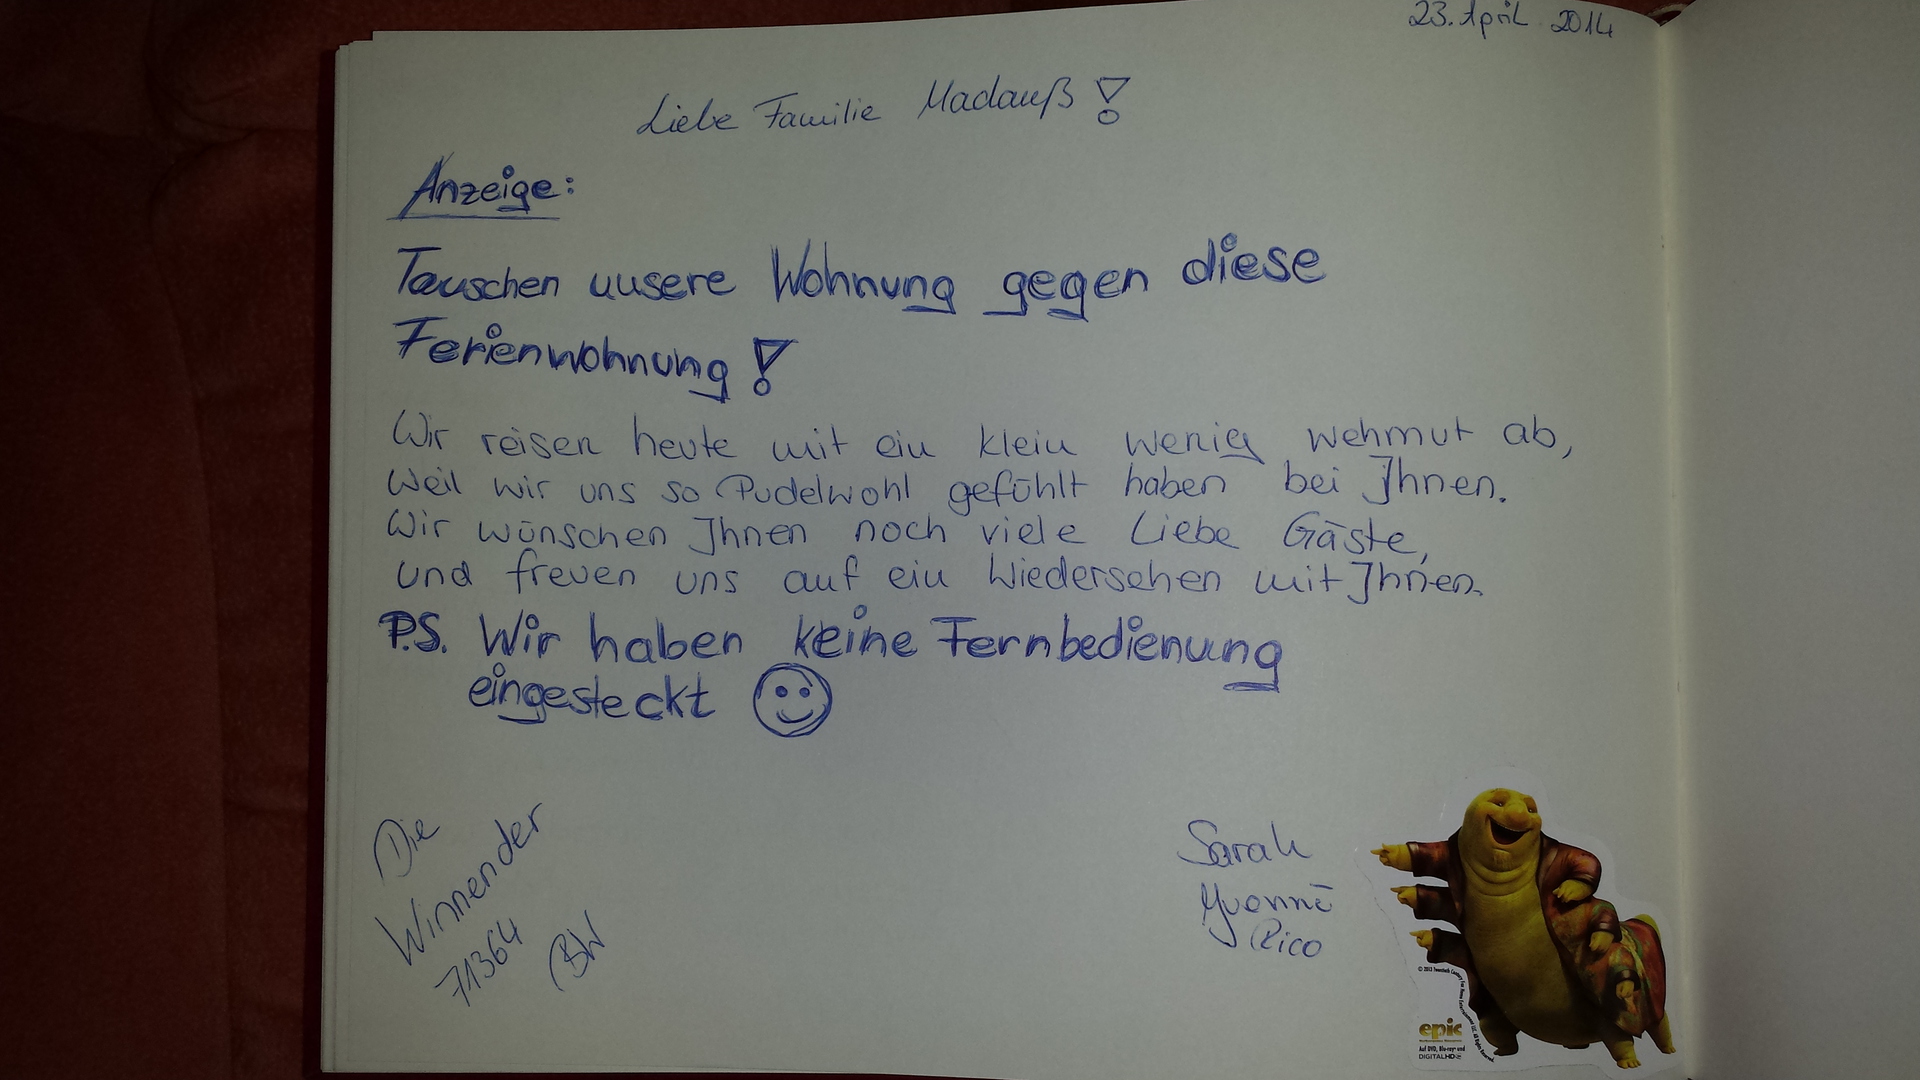 23. April 2014
Liebe Familie Madauß!
Anzeige:
Tauschen unsere Wohnung gegen diese
Ferienwohnung!
Wir reisen heute mit ein klein wenig wehmut ab,
Weil wir uns so Pudelwohl gefühlt haben bei Ihnen.
Wir wünschen Ihnen noch viele Liebe Gäste,
und freuen uns auf ein Wiedersehen mit Ihnen.
P.S. Wir haben keine Fernbedienung
eingesteckt ☺
Die
Winnender
71364
BW
Sarah
Yvonne
Rico
epic
Auf DVD, Blu-ray und
DIGITAL HD